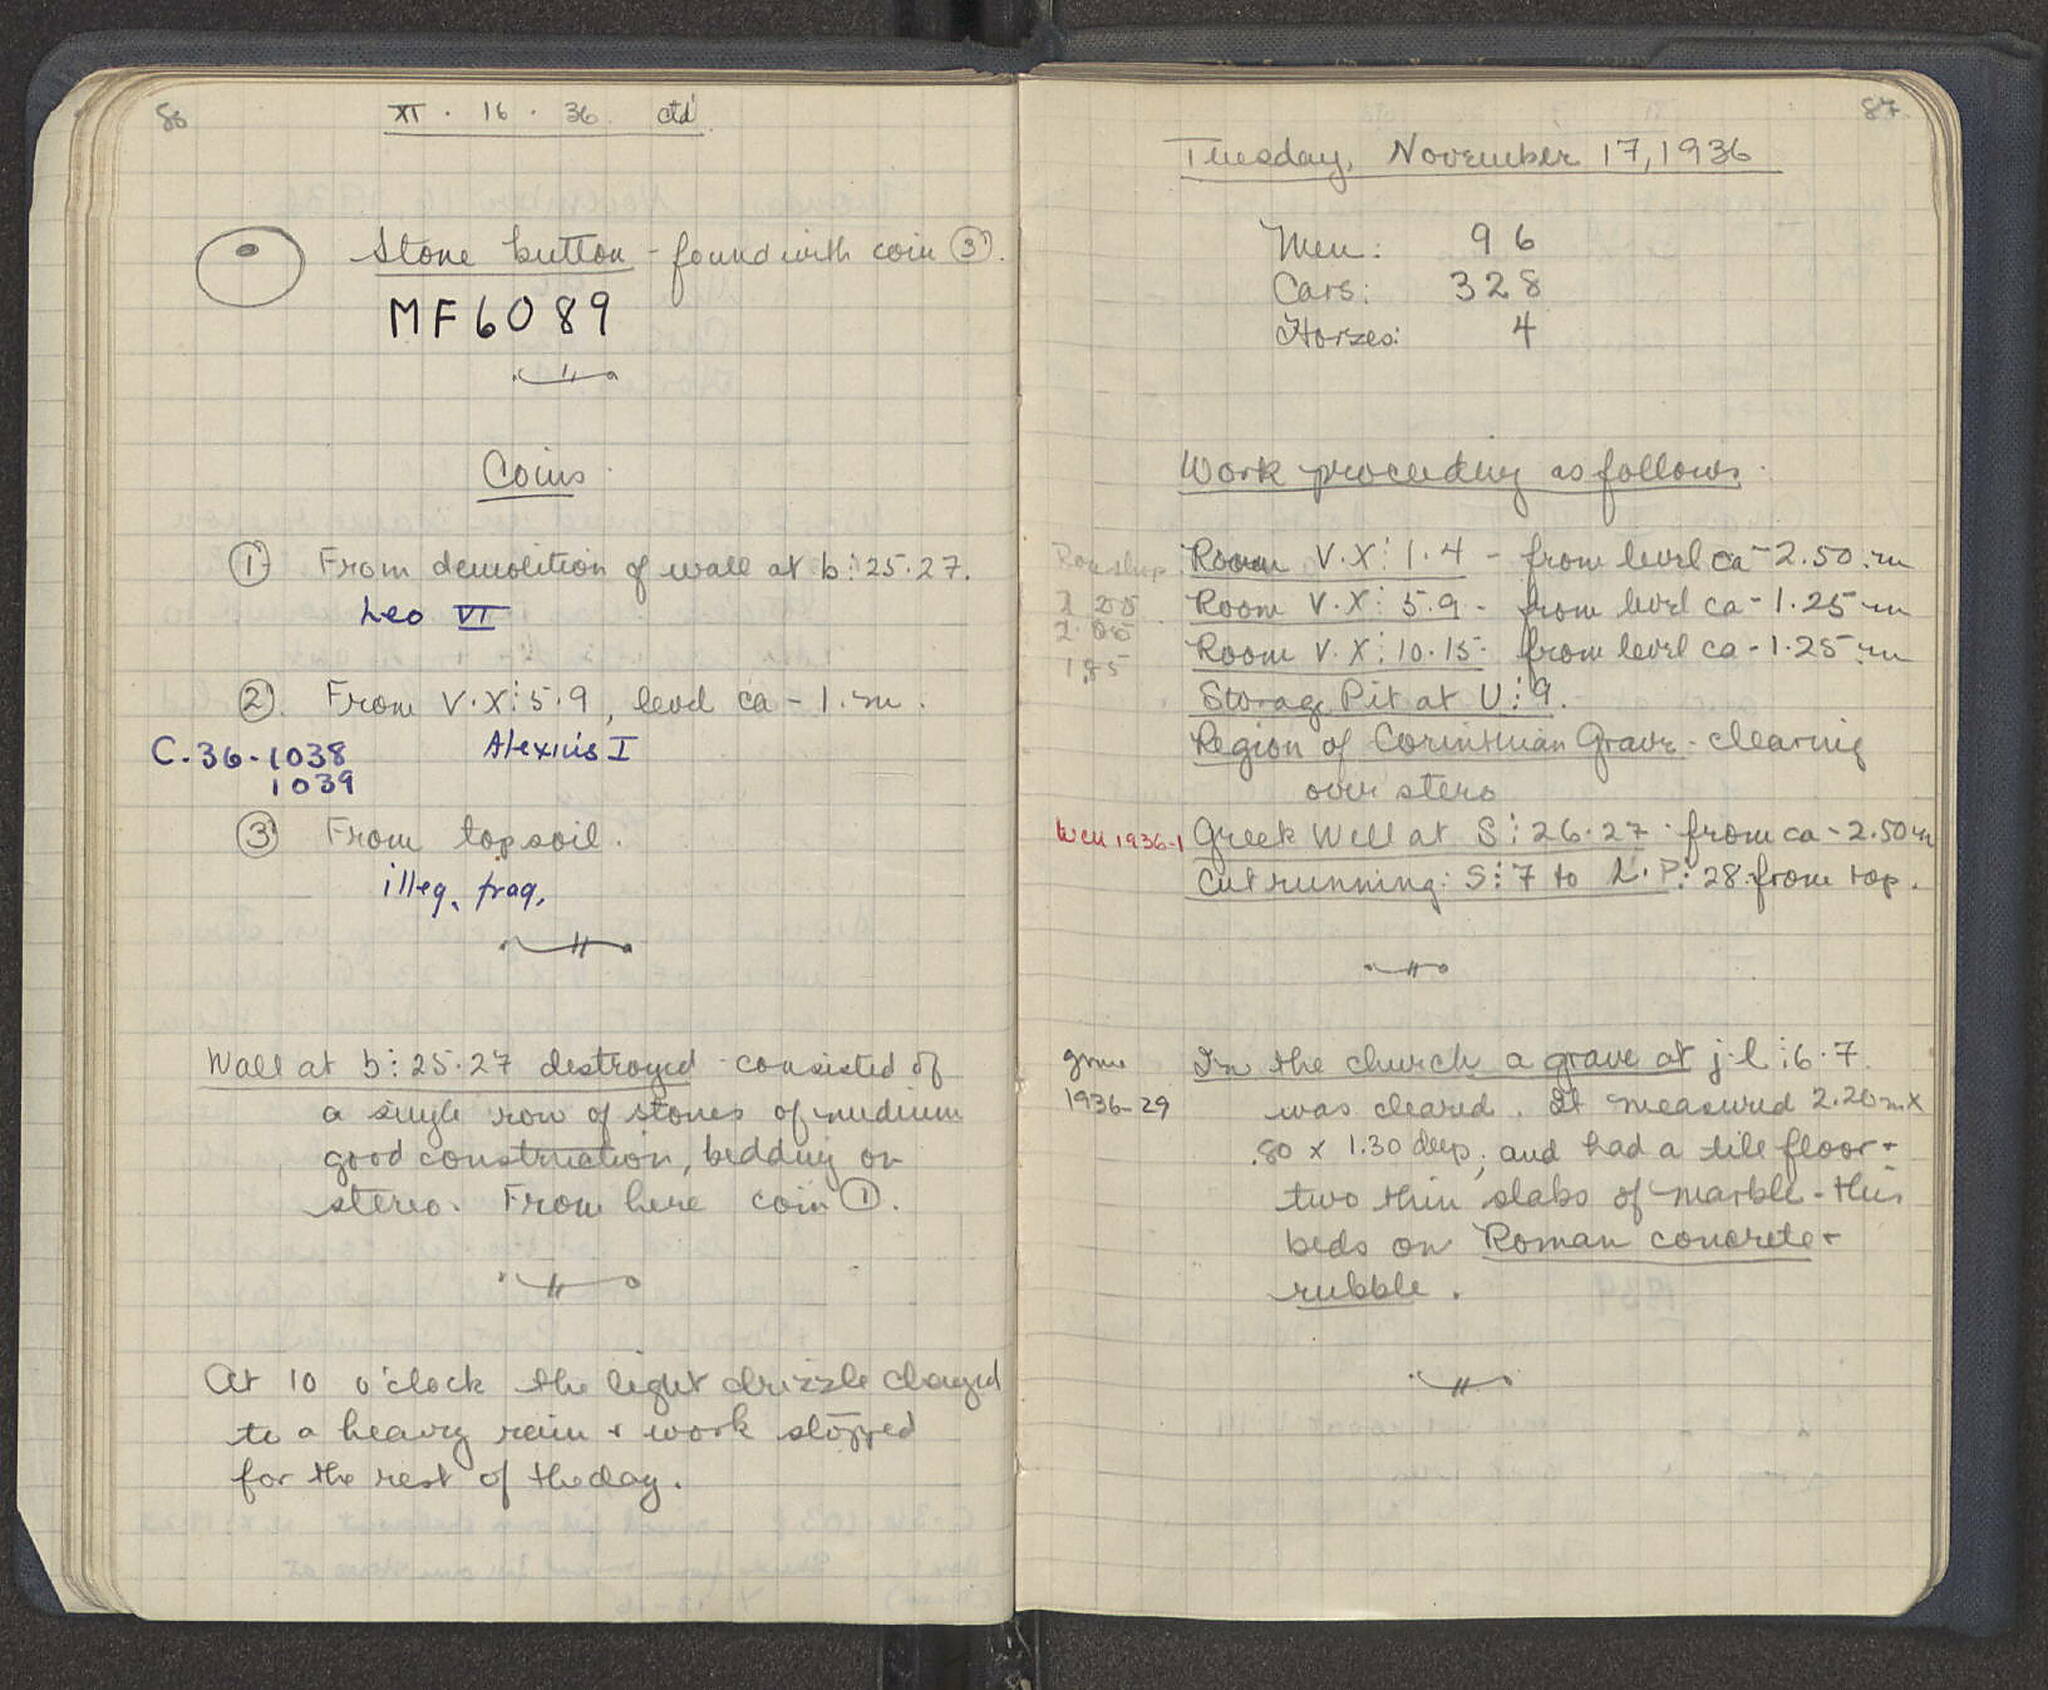 86
XI . 16 . 36 ctd
Stone button - found with coin ③.
MF6089
Coins
① From demolition of wall at b:25.27.
Leo VI
② From V.X:5.9, level ca - 1. m.
C-36-1038
1039
Alexius I
③ From topsoil.
illeg. frag.
Wall at b:25.27 destroyed - consisted of
a single row of stones of medium
good construction, bedding on
stereo. From here coin ①.
At 10 o'clock the light drizzle changed
to a heavy rain + work stopped
for the rest of the day.
87.
Tuesday, November 17, 1936
Men: 96
Cars: 328
Horses: 4
Work proceeding as follows.
Room V.X:1.4 - from level ca - 2.50 m
Room V.X:5.9 - from level ca - 1.25 m
2.05
Room V.X:10.15 - from level ca - 1.25 m
1.85
Storage Pit at U:9.
Region of Corinthian Grave - clearing
over stero
Well 1936-1 Greek Well at S:26.27 - from ca - 2.50 m
Cut running: S:7 to L.P:28 from top.
grave In the church a grave at j-l:6.7
1936-29 was cleared. It measured 2.20 m x
.80 x 1.30 deep, and had a tile floor +
two thin slabs of marble - this
beds on Roman concrete +
rubble.